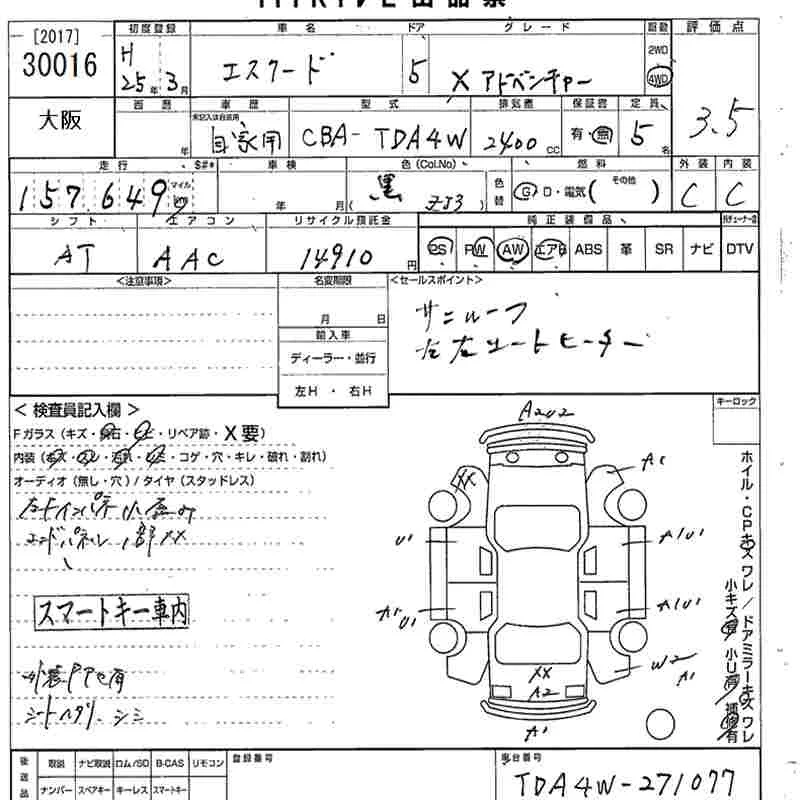 [2017]
30016
初度登録
車名
ドア
グレード
駆動
評価点
H
25年3月
エスクード
5
X アドベンチャー
2WD
4WD
3.5
大阪
西暦
年
車歴
未記入は自家用
自家用
型式
CBA-TDA4W
排気量
2400cc
保証書
有・無
定員
5名
走行
S#*
157,649
マイル
km
車検
年 月
色(Col.No)
黒
( ZJ3 )
色替
燃料
G D・電気( その他 )
外装
内装
C
C
シフト
AT
エアコン
AAC
リサイクル預託金
14910円
純正装備品
PS
PW
AW
エアB
ABS
革
SR
ナビ
DTV
<注意事項>
名変期限
月 日
輸入車
ディーラー・並行
左H ・ 右H
<セールスポイント>
サンルーフ
左右シートヒーター
キーロック
<検査員記入欄>
Fガラス(キズ・飛石・ワレ・リペア跡・X要)
内装(キズ・スレ・汚れ・シミ・コゲ・穴・キレ・破れ・割れ)
オーディオ(無し・穴)/タイヤ(スタッドレス)
エンドパネル 1部XX
スマートキー車内
シートヘタリ、シミ
A2U2
XX
A1
U1
A1U1
A1
U1
A1U1
W2
A1
XX
A2
A1
ホイル・CPキズ ワレ/ドアミラーキズ ワレ
小キズ有 小U有 補修有
後送品
取説
ナビ取説
ロム/SD
B-CAS
リモコン
ナンバー
スペアキー
キーレス
スマートキー
登録番号
車台番号
TDA4W-271077